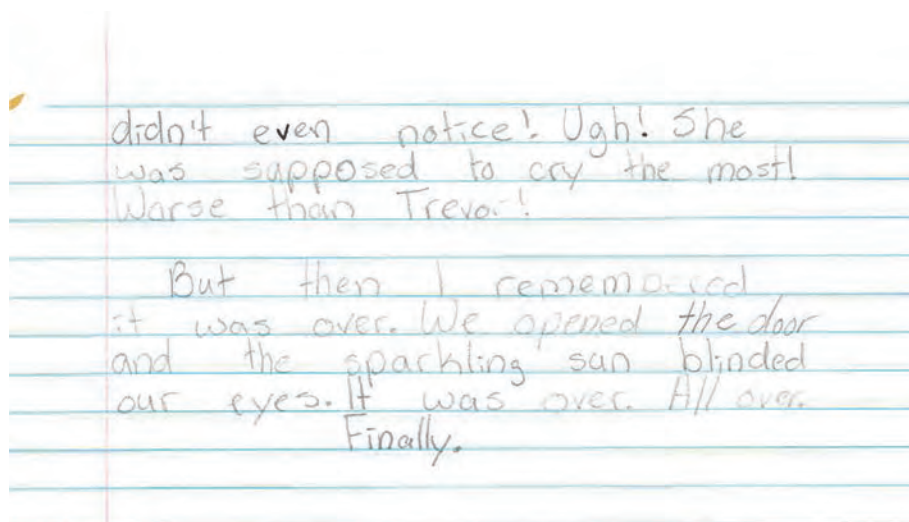 didn't even notice! Ugh! She
was supposed to cry the most!
Warse than Trevor!
But then I remembered
it was over. We opened the door
and the sparkling sun blinded
our eyes. It was over. All over.
Finally.